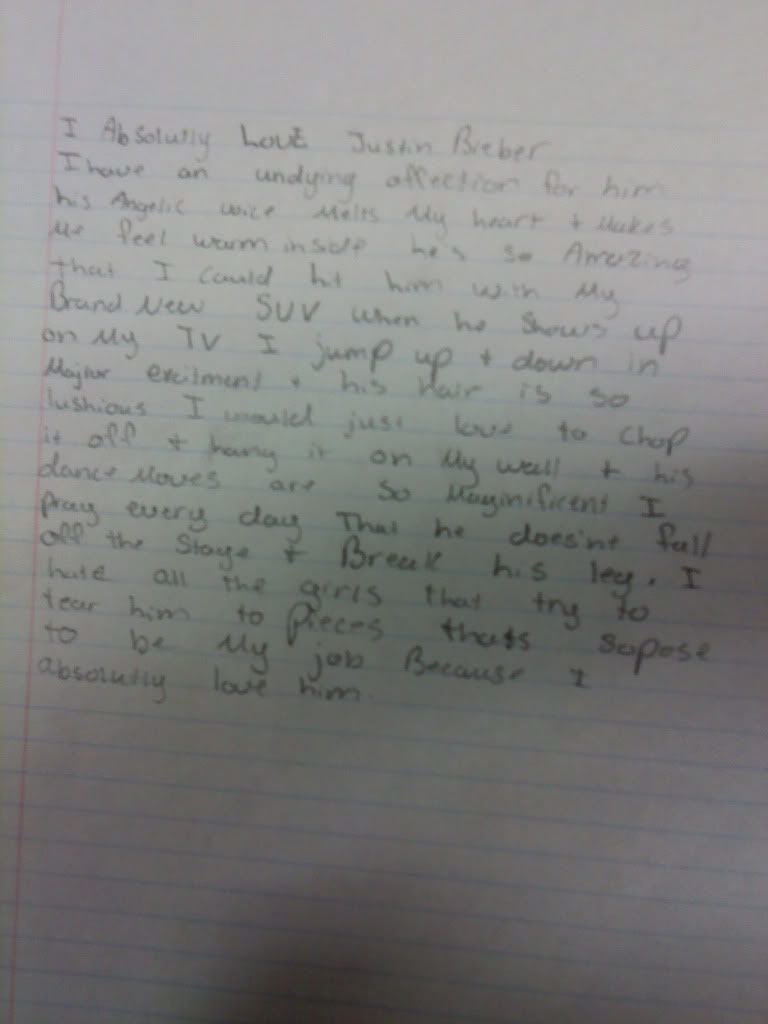 I Absolutly LOVE Justin Bieber
I have an undying affection for him
his Angelic voice Melts My heart + Makes
Me feel warm inside he's so Amazing
that I could hit him with My
Brand New SUV when he shows up
on My TV I jump up + down in
Major excitment + his Hair is so
lushious I would just love to Chop
it off + hang it on My wall + his
dance Moves are so Maginificent I
pray every day That he doesint fall
off the Stage + Break his leg. I
hate all the girls that try to
tear him to Pieces thats sopose
to be My job Because I
absolutly love him.